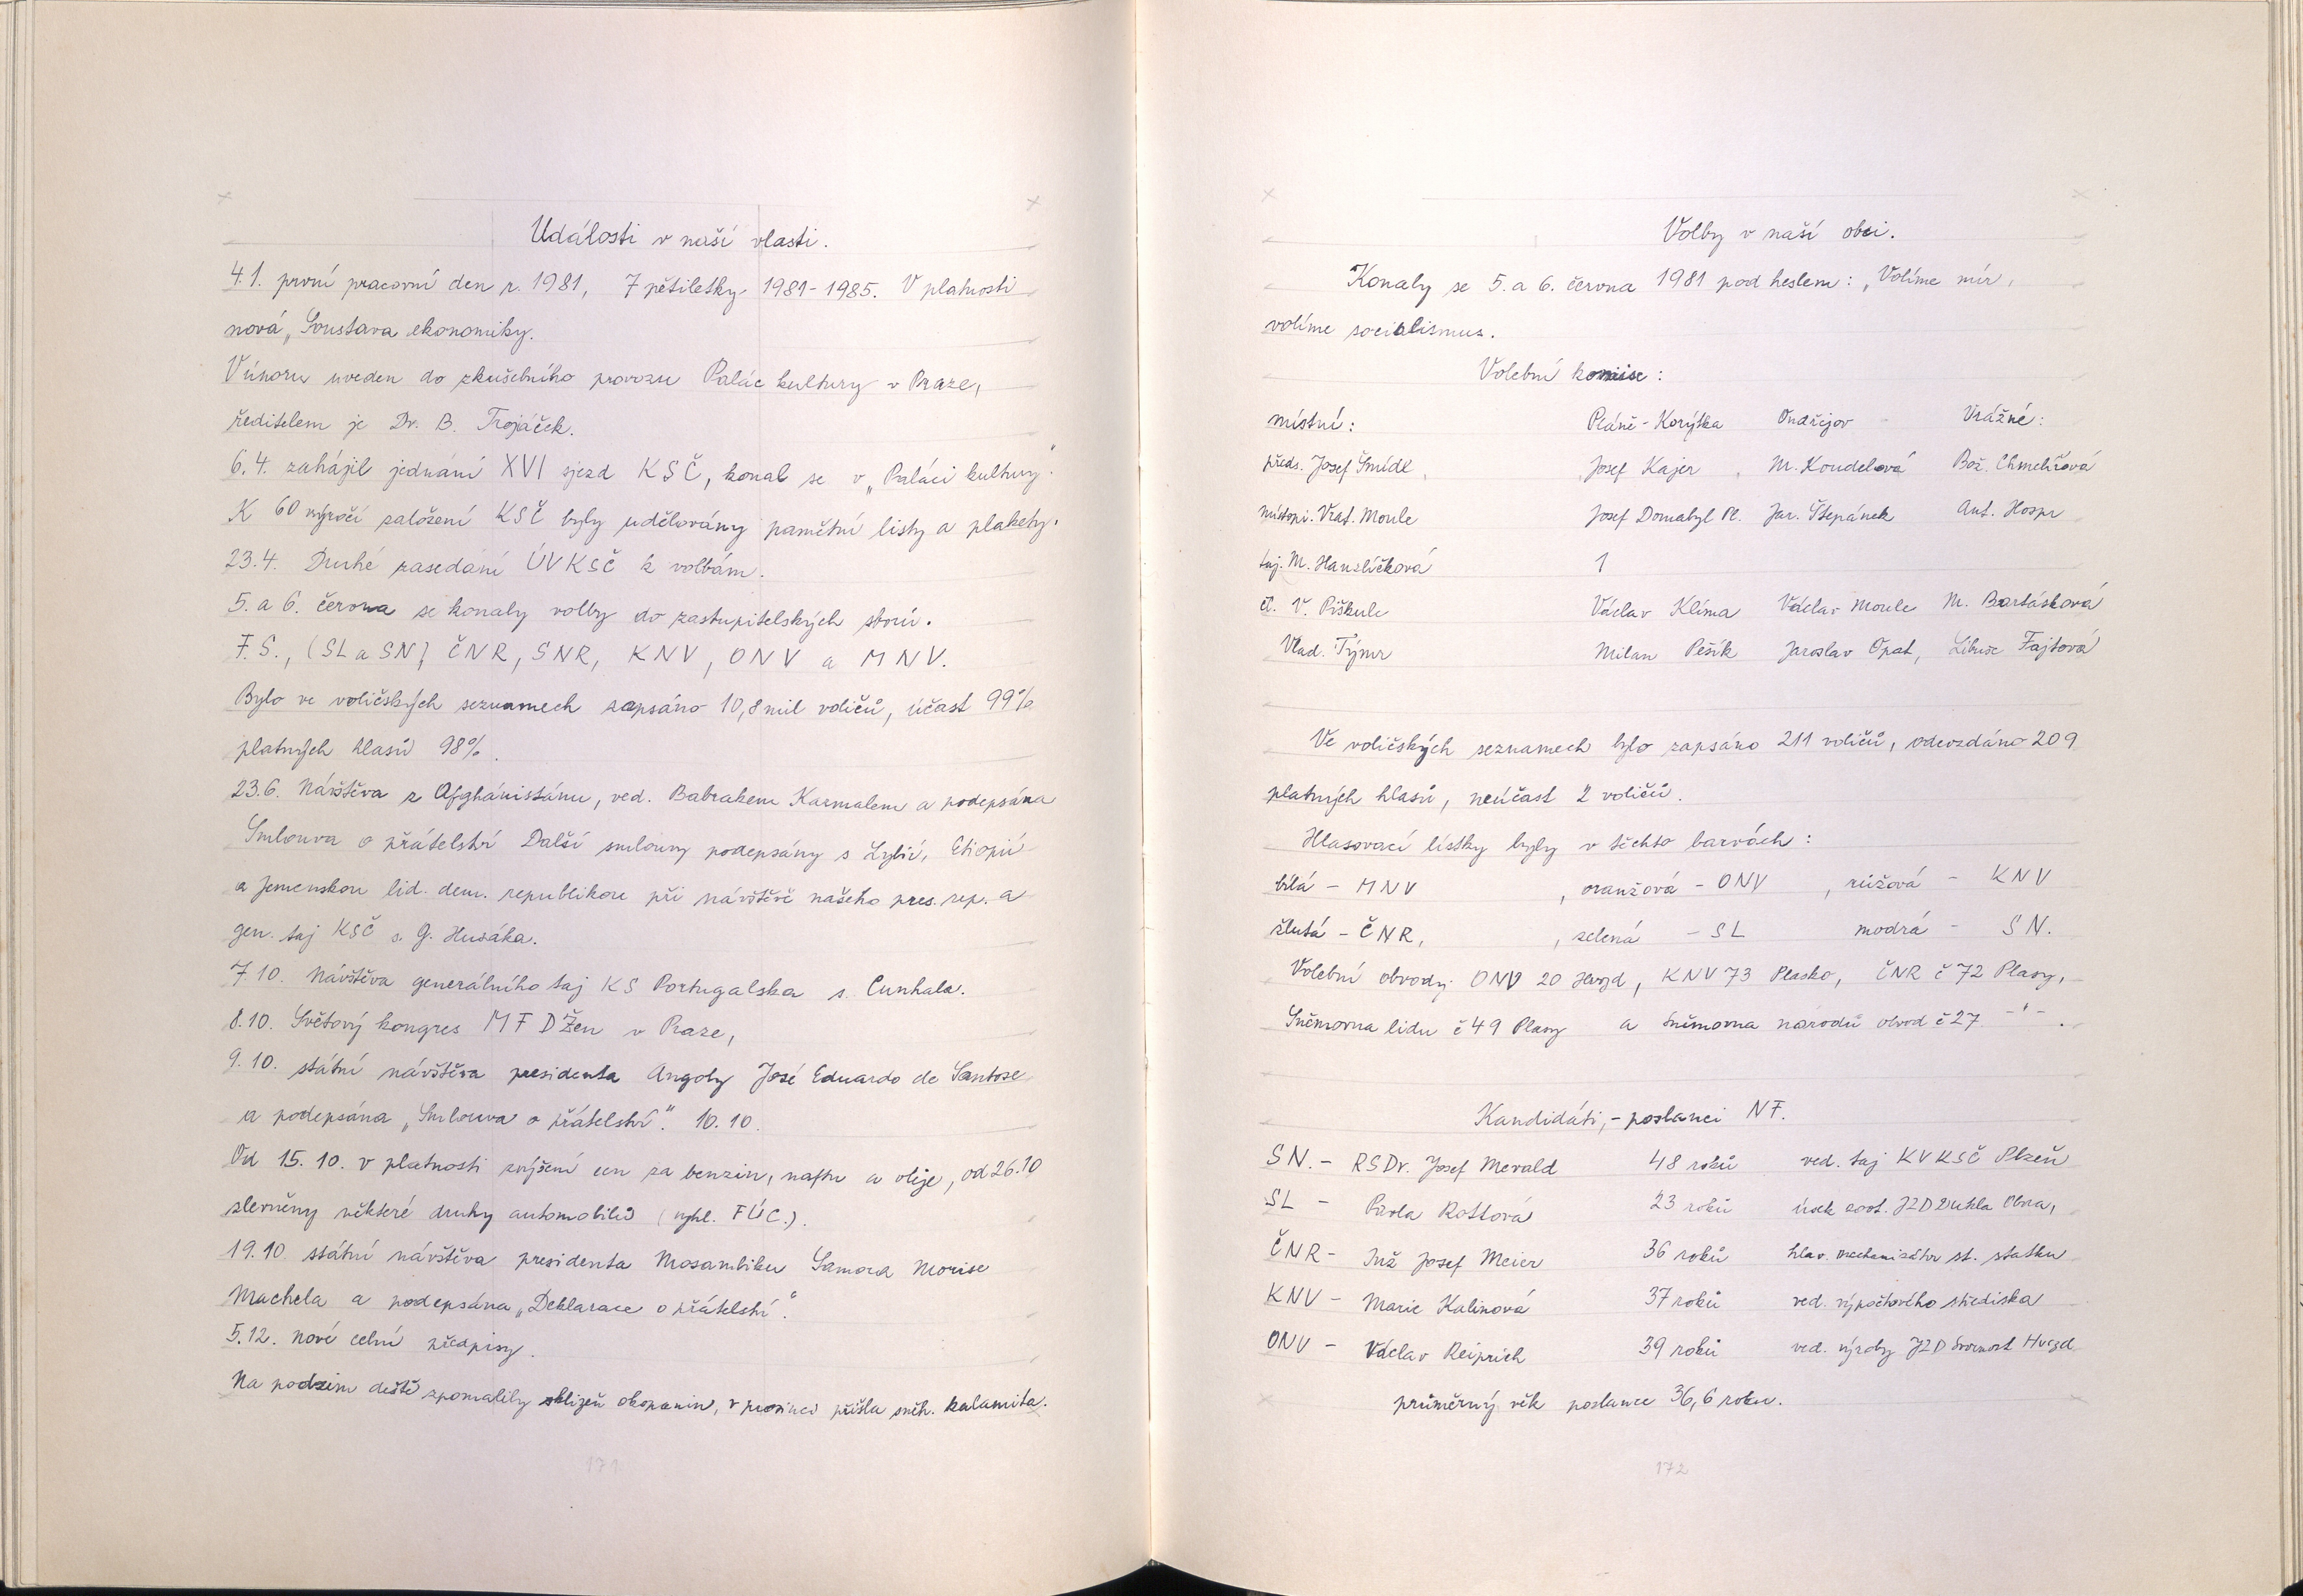 Události v naší vlasti.
4.1. první pracovní den r. 1981, 7 pětiletky 1981-1985. V platnosti
nová „Soustava ekonomiky.
V únoru uveden do zkušebního provozu Palác kultury v Praze,
ředitelem je Dr. B. Trojáček.
6.4. zahájil jednání XVI sjezd KSČ, konal se v „Paláci kultury".
K 60 výročí založení KSČ byly udělovány pamětní listy a plakety.
23.4. Druhé zasedání ÚVKSČ k volbám.
5. a 6. června se konaly volby do zastupitelských sborů.
F.S., (SL a SN) ČNR, SNR, KNV, ONV a MNV.
Bylo ve voličských seznamech zapsáno 10,8 mil voličů, účast 99%
platných hlasů 98%.
23.6. Návštěva z Afghánistánu, ved. Babrakem Karmalem a podepsána
Smlouva o přátelství Další smlouvy podepsány s Lybií, Etiopií
a Jemenskou lid. dem. republikou při návštěvě našeho pres. rep. a
gen. taj KSČ s. G. Husáka.
7.10. Návštěva generálního taj KS Portugalska s. Cunhala.
8.10. Světový kongres MFDŽen v Praze,
9.10. státní návštěva presidenta Angoly José Eduardo de Santose
a podepsána „Smlouva o přátelství". 10.10.
Od 15.10. v platnosti zvýšení cen za benzin, naftu a oleje, od 26.10
slevněny některé druhy automobilů (vyhl. FÚC.).
19.10 státní návštěva presidenta Mosambiku Samora Moise
Machela a podepsána „Deklarace o přátelství".
5.12. nové celní předpisy.
Na podzim deště zpomalily sklizeň okopanin, v prosinci přišla sněh. kalamita.
171
Volby v naší obci.
Konaly se 5. a 6. června 1981 pod heslem: „Volíme mír,
volíme socialismus.
Volební komise:
místní: Pláně-Korýtka Ondřejov Vrážné:
předs. Josef Šmídl, Josef Kajer, M. Koudelová Bož. Chmelířová
místopř. Vrat. Moule Josef Domabyl Pl. Jar. Štěpánek Ant. Hospr
taj. M. Hanzlíčková 1
čl. V. Piškule Václav Klíma Václav Moule M. Bartásková
Vlad. Týmr Milan Pešík Jaroslav Opat, Libuše Fajtová
Ve voličských seznamech bylo zapsáno 211 voličů, odevzdáno 209
platných hlasů, neúčast 2 voličů.
Hlasovací lístky byly v těchto barvách:
bílá - MNV , oranžová - ONV , růžová - KNV
žlutá - ČNR, , zelená - SL modrá - SN.
Volební obvody: ONV 20 Hvozd, KNV 73 Plasko, ČNR č 72 Plasy,
Sněmovna lidu č 49 Plasy a Sněmovna národů obvod č 27 -"-.
Kandidáti,- poslanci NF.
SN. - RSDr. Josef Mevald 48 roků ved. taj KVKSČ Plzeň
SL - Pavla Rottová 23 roků úsek zoot. JZD Dukla Obora,
ČNR - Inž Josef Meier 36 roků hlav. mechanizátor st. statku
KNV - Marie Kalinová 37 roků ved. výpočtového střediska
ONV - Václav Reiprich 39 roků ved. výroby JZD Svornost Hvozd
průměrný věk poslance 36,6 roku.
172